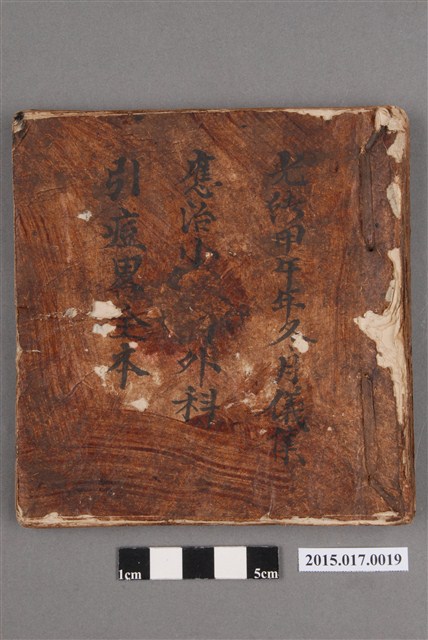 光緒甲午年冬月儀
應治小 外科
引痘畧全本
1cm 5cm
2015.017.0019